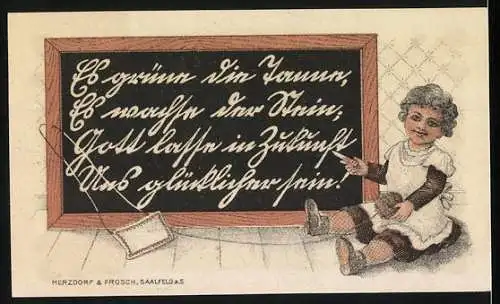 Es grüne die Tanne,
Es wachse der Stein;
Gott lasse in Zukunft
Uns glücklicher sein!
HERZDORF & FROSCH, SAALFELD A.S.